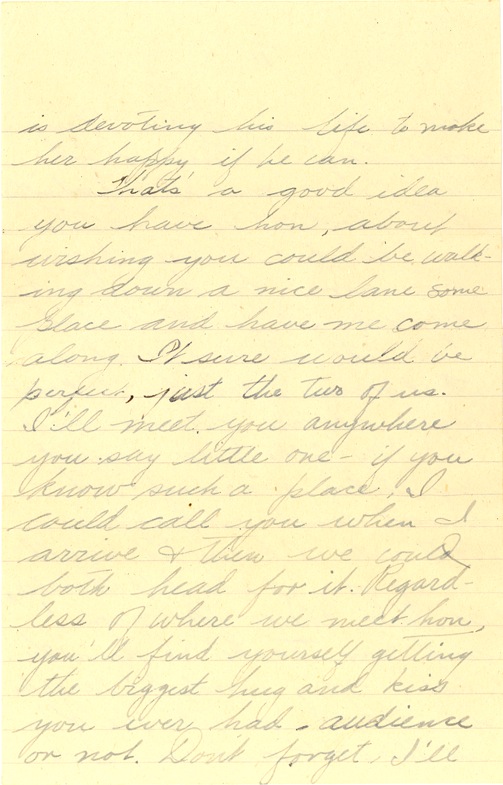 is devoting his life to make
her happy if he can.
That's a good idea
you have hon, about
wishing you could be walk-
ing down a nice lane some
place and have me come
along. It sure would be
perfect, just the two of us.
I'll meet you anywhere
you say little one - if you
know such a place, I
could call you when I
arrive & then we could
both head for it. Regard-
less of where we meet hon,
you'll find yourself getting
the biggest hug and kiss
you ever had - audience
or not. Don't forget, I'll